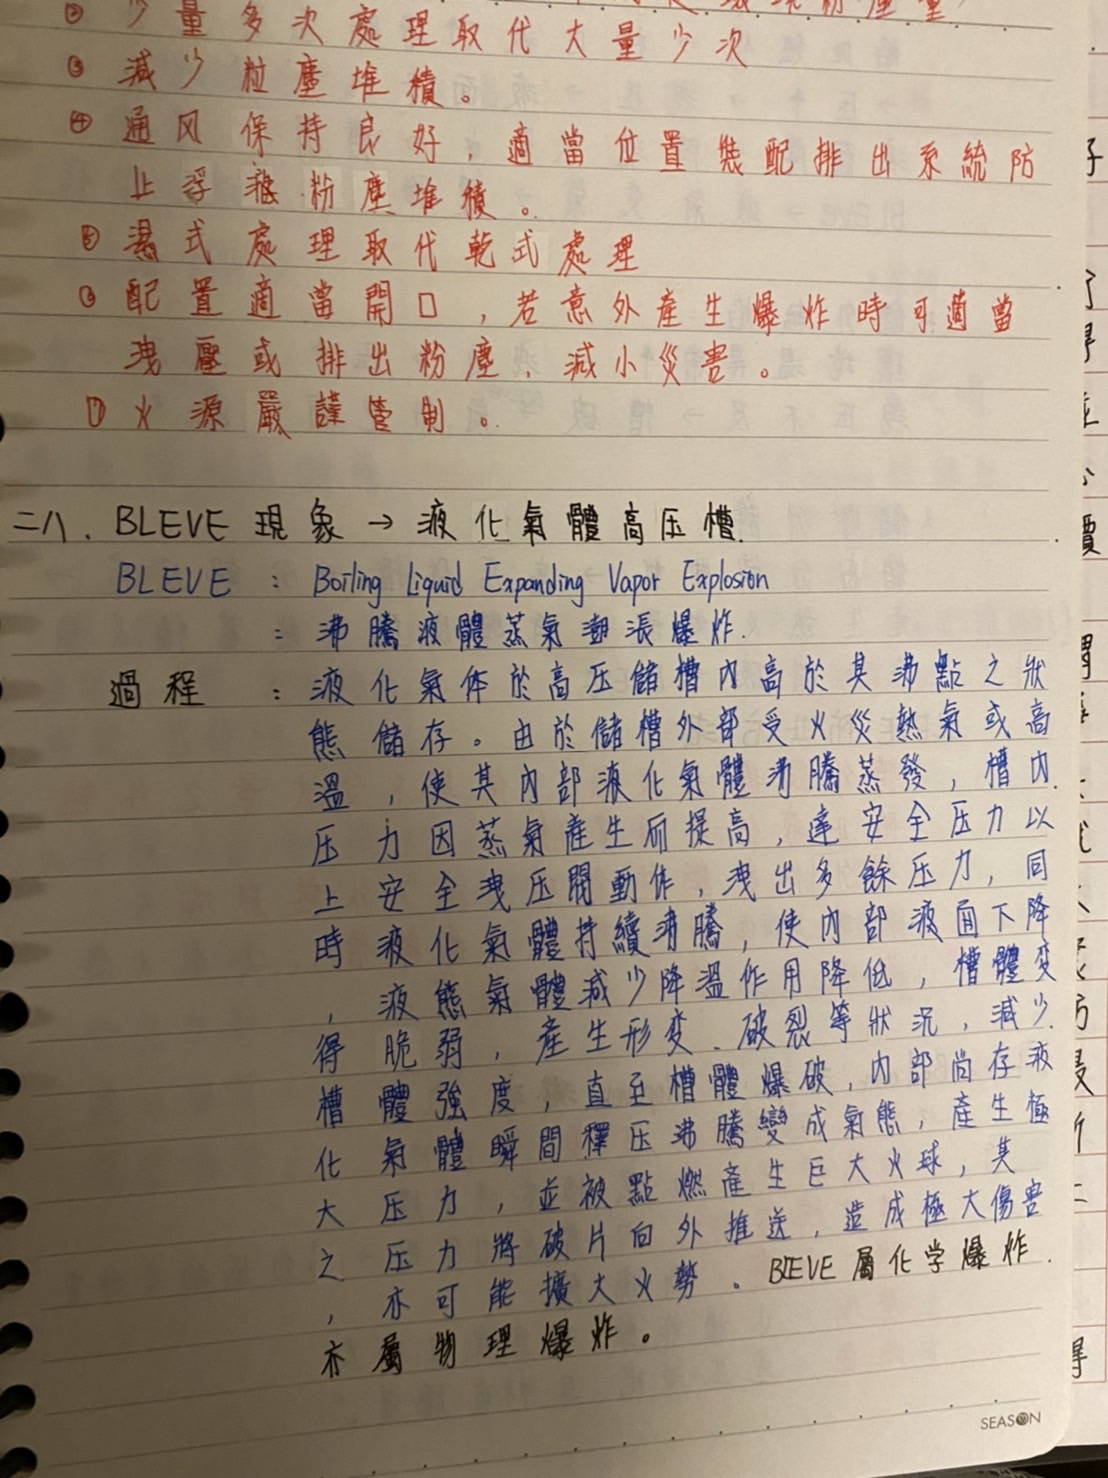 ② 少量多次處理取代大量少次
③ 減少粒塵堆積。
④ 通风保持良好，適當位置裝配排出系統防
止浮 粉塵堆積。
⑤ 濕式處理取代乾式處理
⑥ 配置適當開口，若意外產生爆炸時可適當
洩壓或排出粉塵，減小災害。
⑦ 火源嚴謹管制。
二八. BLEVE 現象 → 液化氣體高压槽.
BLEVE : Boiling Liquid Expanding Vapor Explosion
: 沸騰液體蒸氣澎漲爆炸.
過程 : 液化氣体於高压儲槽內高於其沸點之狀
態儲存。由於儲槽外部受火災熱氣或高
溫，使其內部液化氣體沸騰蒸發，槽內
压力因蒸氣產生而提高，達安全压力以
上安全洩压閥動作，洩出多餘压力，同
時液化氣體持續沸騰，使內部液面下降
，液態氣體減少降溫作用降低，槽體变
得脆弱，產生形变、破裂等狀況，減少
槽體強度，直至槽體爆破，內部尚存液
化氣體瞬間釋压沸騰變成氣態，產生極
大压力，並被點燃產生巨大火球，其
之压力將破片向外推送，造成極大傷害
，亦可能擴大火勢。BLEVE 屬化学爆炸.
亦屬物理爆炸。
SEASON